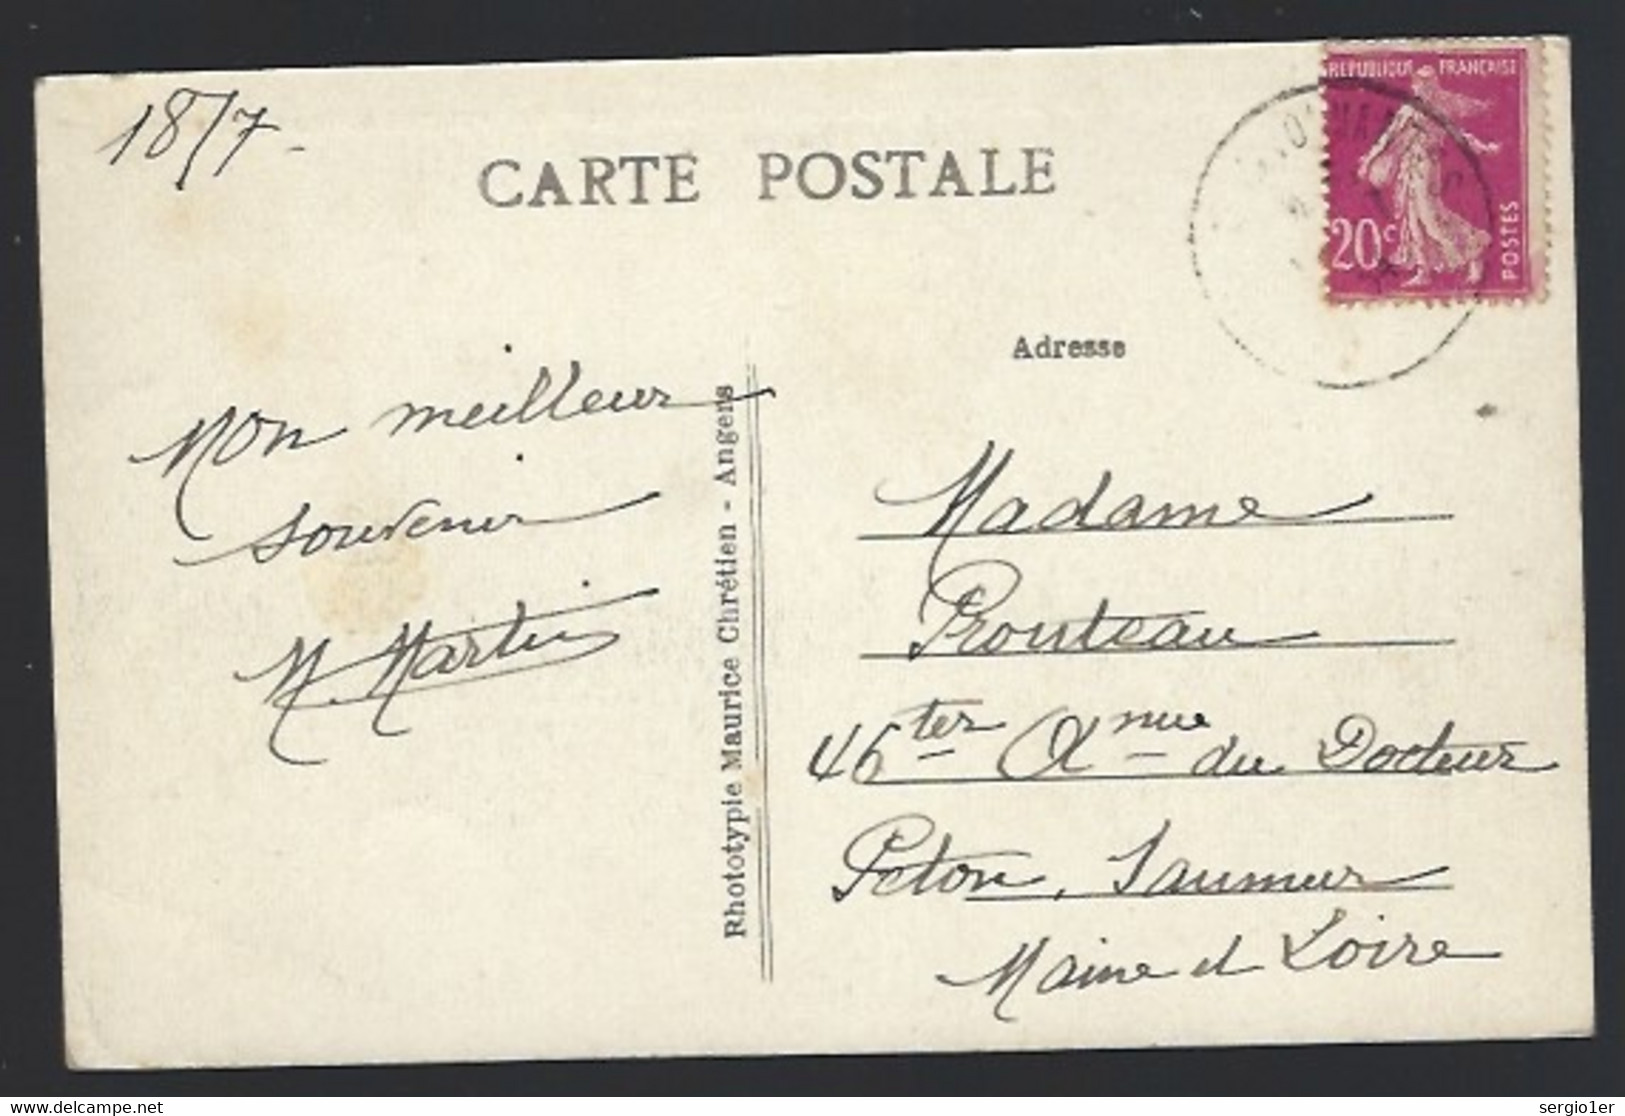 18/7
CARTE POSTALE
REPUBLIQUE FRANÇAISE
20c
POSTES
Adresse
Mon meilleur
souvenir
M Martin
Rhototypie Maurice Chrétien - Angers
Madame
Prouteau
46 ter Anue du Docteur
Peton, Saumur
Maine et Loire
delcampe.net
sergio1er